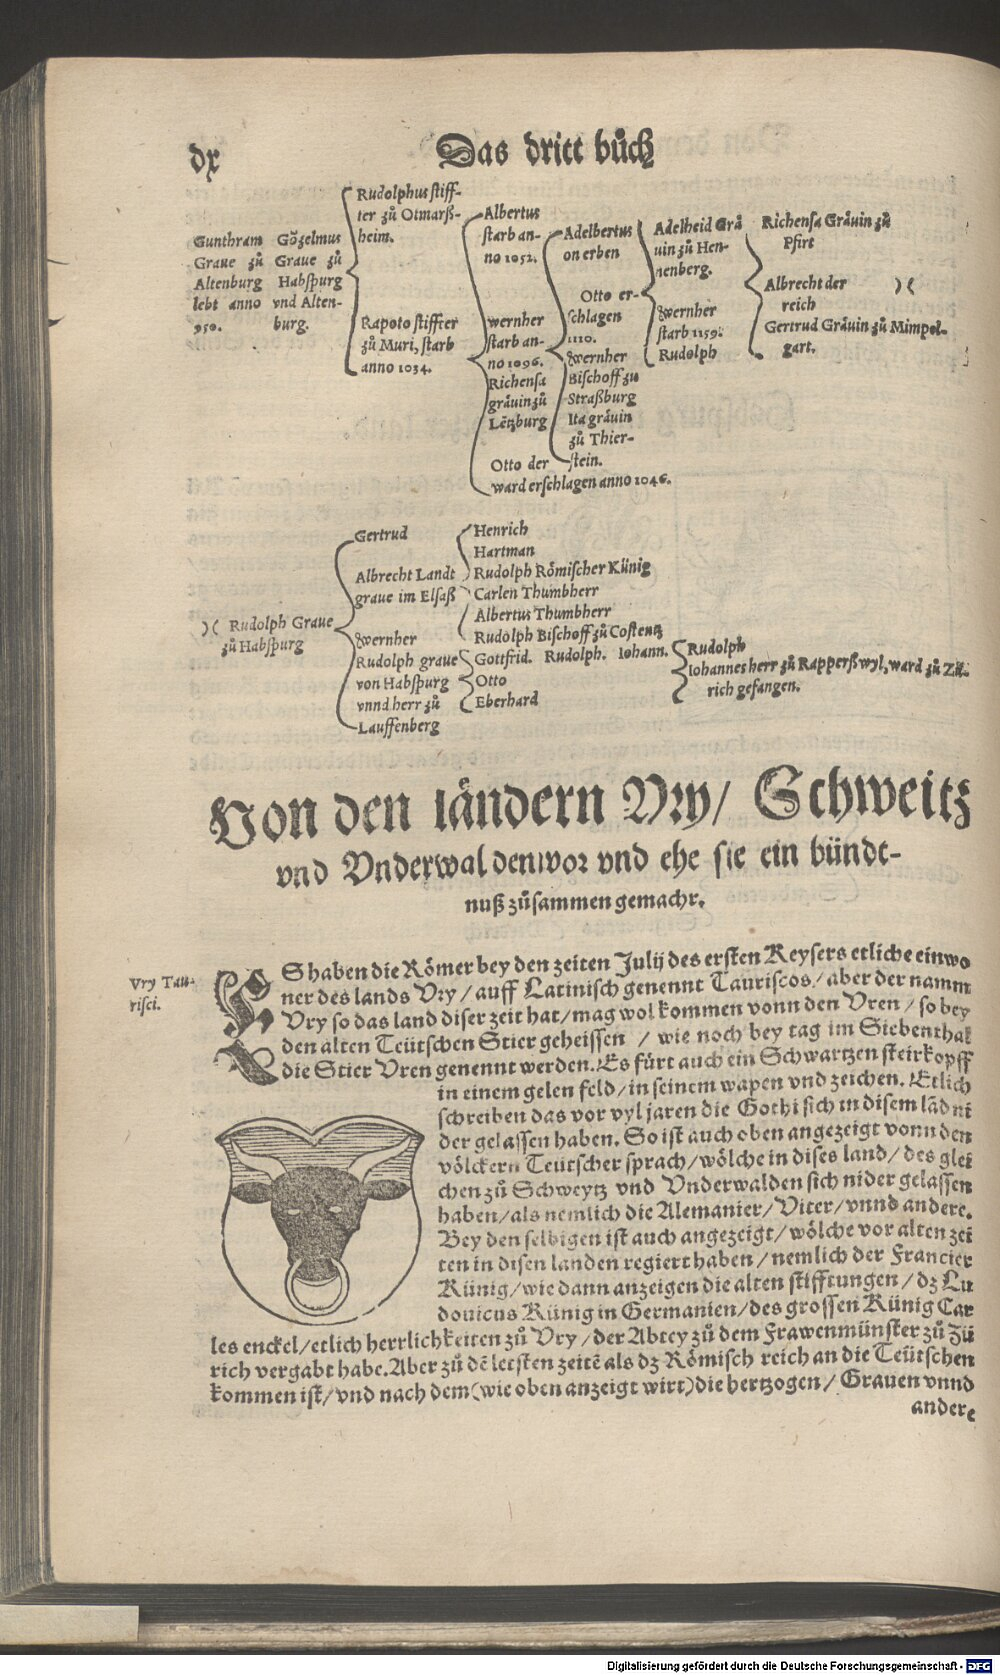 dx
Das dritt bůch
Gunthram
Graue zů
Altenburg
lebt anno
950.
Gözelmus
Graue zů
Habspurg
vnd Alten-
burg.
Rudolphus stiff-
ter zů Otmarß-
heim.
Rapoto stiffter
zů Muri, starb
anno 1034.
Albertus
starb an-
no 1052.
wernher
starb an-
no 1096.
Richensa
gräuin zů
Lětzburg
Otto der
ward erschlagen anno 1046.
Adelbertus
on erben
Otto er-
schlagen
1110.
Wernher
Bischoff zu
Straßburg
Ita gräuin
zů Thier-
stein.
Adelheid Grä
uin zů Hen-
nenberg.
Wernher
starb 1159.
Rudolph
Richensa Gräuin zů
Pfirt
Albrecht der
reich
Gertrud Gräuin zů Mimpel-
gart.
)(
)( Rudolph Graue
zů Habspurg
Gertrud
Albrecht Landt
graue im Elsaß
Wernher
Rudolph graue
von Habspurg
vnnd herr zů
Lauffenberg
Henrich
Hartman
Rudolph Römischer Künig
Carlen Thumbherr
Albertus Thumbherr
Rudolph Bischoff zů Costentz
Gottfrid. Rudolph. Iohann.
Otto
Eberhard
Rudolph
Iohannes herr zů Rapperßwyl, ward zů Zü-
rich gefangen.
Von den ländern Vry/ Schweitz
vnd Vnderwalden wor vnd ehe sie ein bündt-
nuß zůsammen gemacht.
Vry Tau-
risci.
ES haben die Römer bey den zeiten Julij des ersten Keysers etliche einwo
ner des lands Vry/ auff Latinisch genennt Tauriscos/ aber der namm
Vry so das land diser zeit hat/ mag wol kommen vonn den Vren/ so bey
den alten Teütschen Stier geheissen / wie noch bey tag im Siebenthal
die Stier Vren genennt werden. Es fürt auch ein Schwartzen steirkopff
in einem gelen feld/ in seinem wapen vnd zeichen. Etlich
schreiben das vor vyl jaren die Gothi sich in disem lãd ni
der gelassen haben. So ist auch oben angezeigt vonn den
völckern Teütscher sprach/ wölche in dises land/ des glei
chen zů Schweytz vnd Vnderwalden sich nider gelassen
haben/ als nemlich die Alemanier/ Viter/ vnnd andere.
Bey den selbigen ist auch angezeigt/ wölche vor alten zei
ten in disen landen regiert haben / nemlich der Francier
Künig/ wie dann anzeigen die alten stifftungen/ dz Lu
douicus Künig in Germanien/ des grossen Künig Car
les enckel/ etlich herrlichkeiten zů Vry / der Abtey zů dem Frawenmünster zů Zü
rich vergabt habe. Aber zů dẽ letsten zeitẽ als dz Römisch reich an die Teütschen
kommen ist/ vnd nach dem (wie oben anzeigt wirt) die hertzogen/ Grauen vnnd
andere
Digitalisierung gefördert durch die Deutsche Forschungsgemeinschaft - DFG